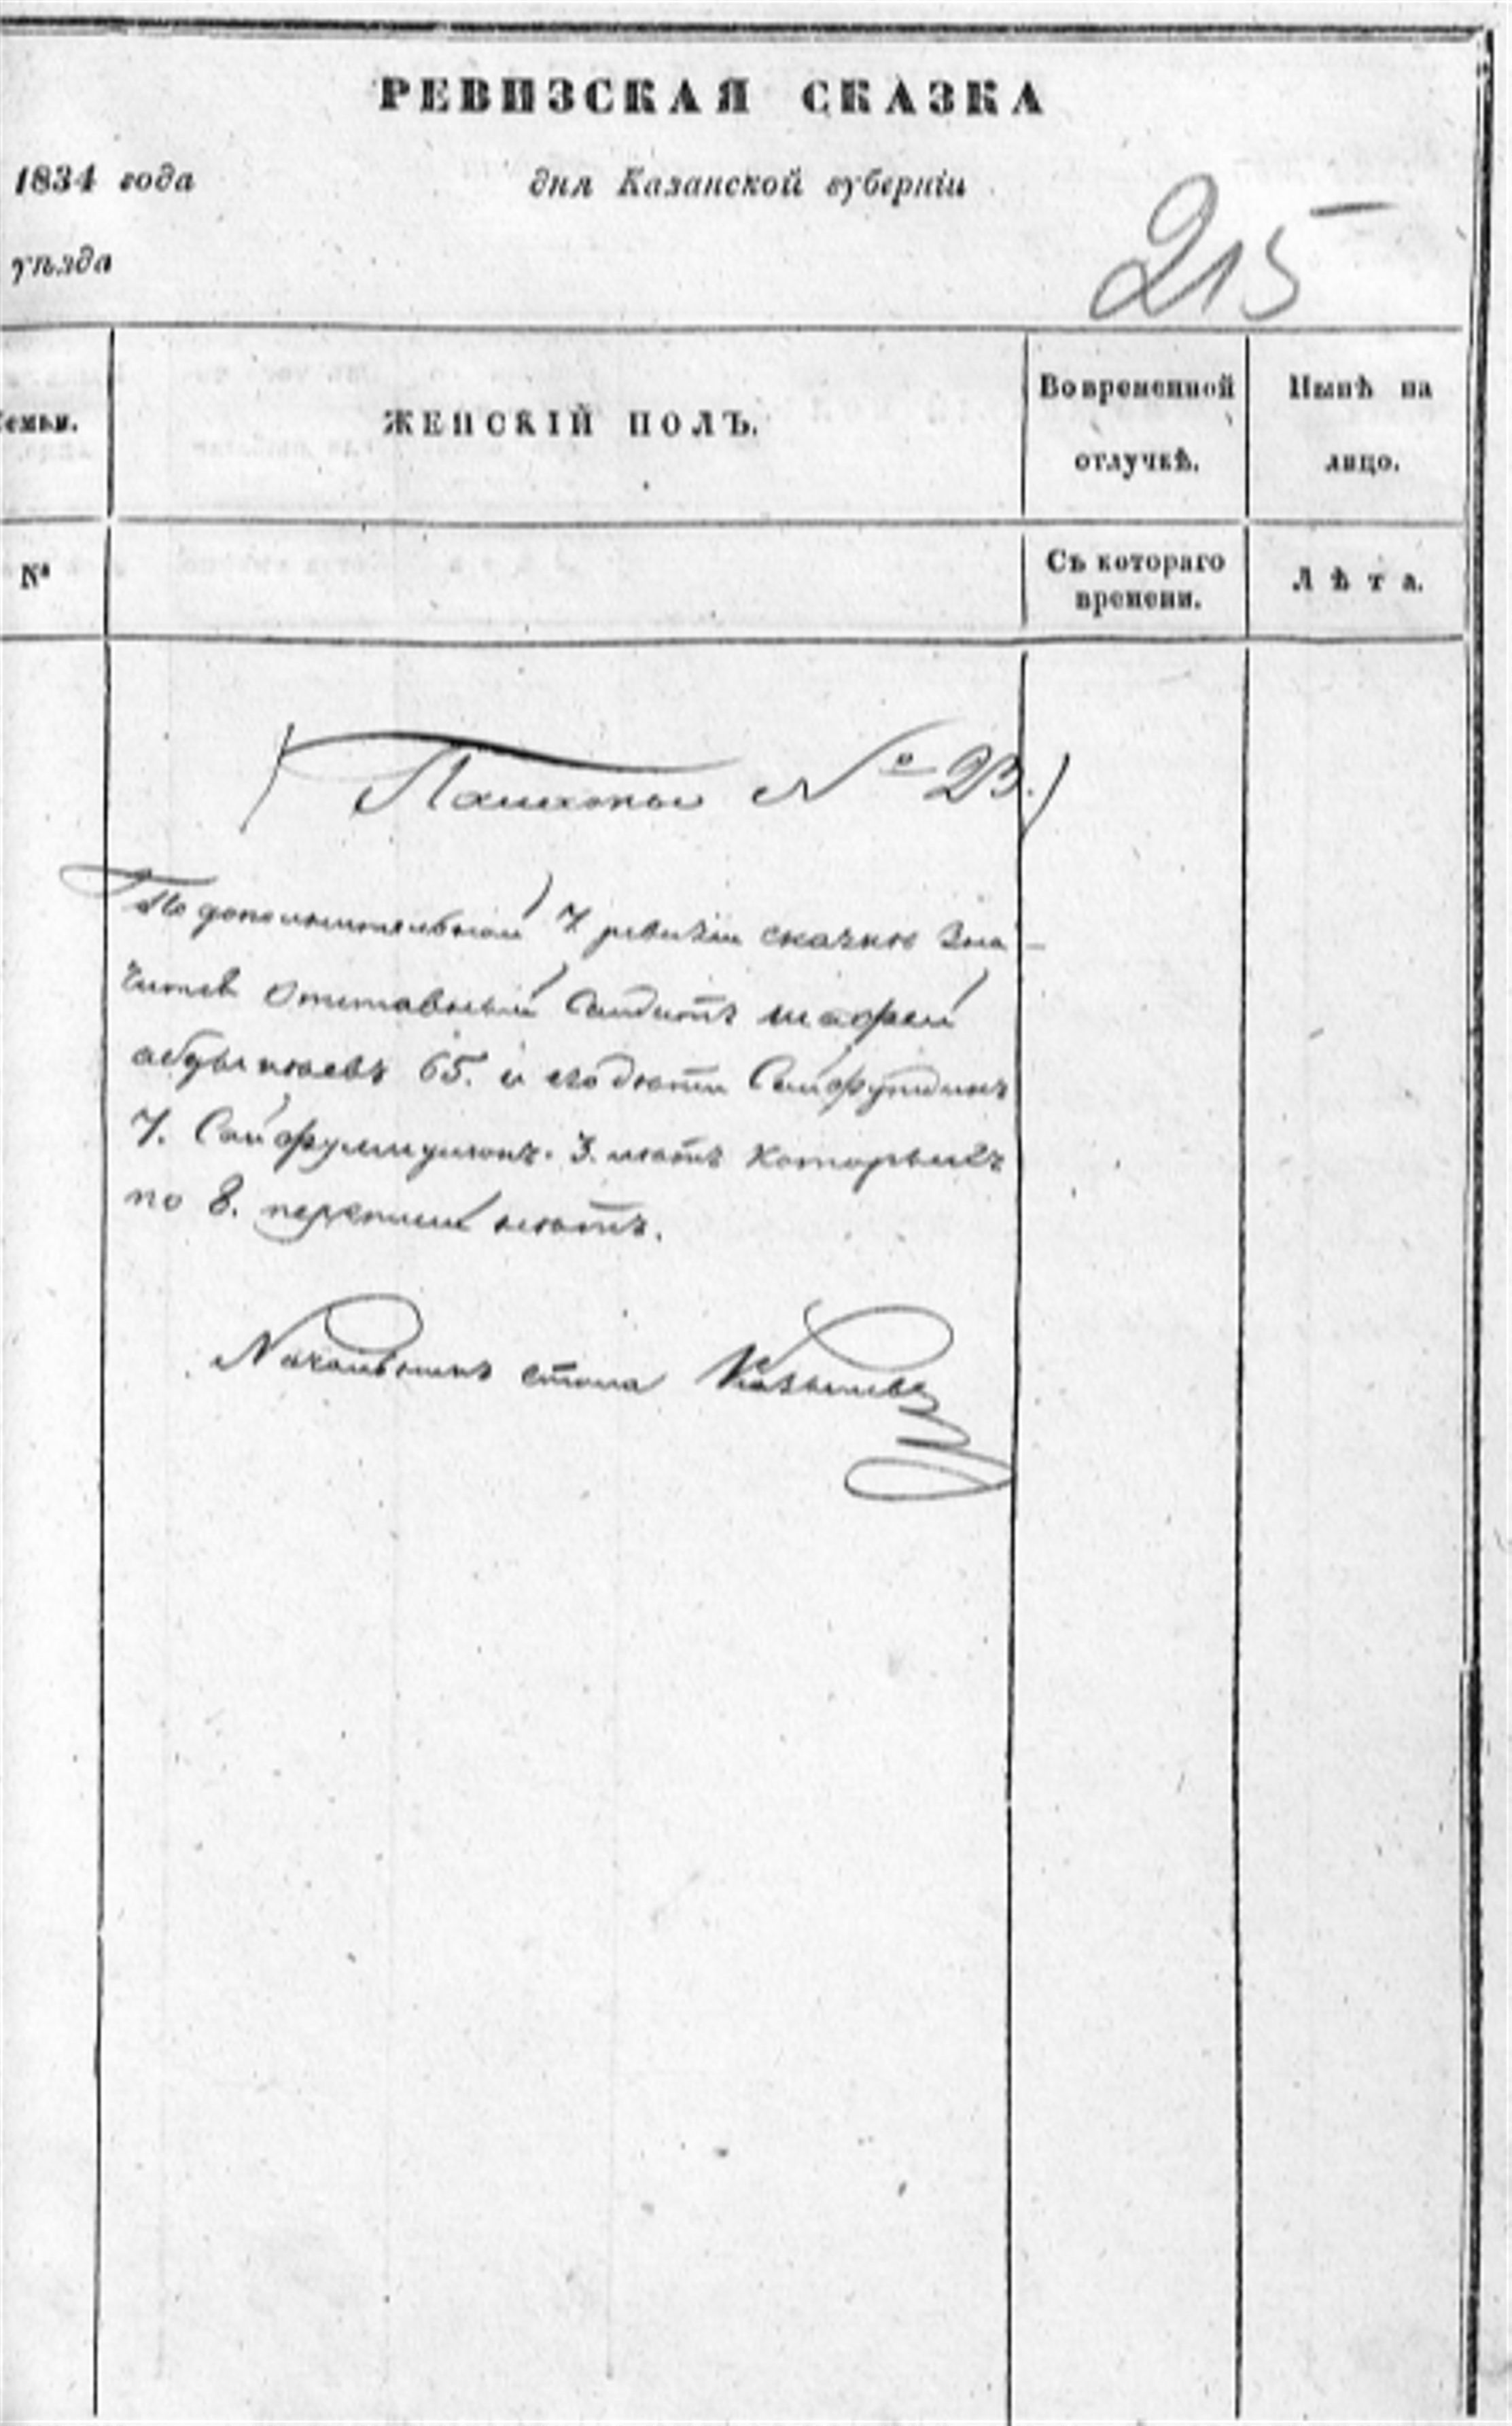 РЕВИЗСКАЯ СКАЗКА
1834 года дня Казанской губерніи
215
уѣзда
Семьи. ЖЕНСКІЙ ПОЛЪ. Во временной отлучкѣ. Нынѣ на лицо.
№ Съ котораго времени. Лѣта.
№ 23.)
По дополнительной 7 ревизіи сказки зна-
чится отставный Саидитъ шафей
65. и его дѣти Сайфутдинъ
7. 3. лѣтъ которыхъ
по 8. переписи нѣтъ.
Начальникъ стола